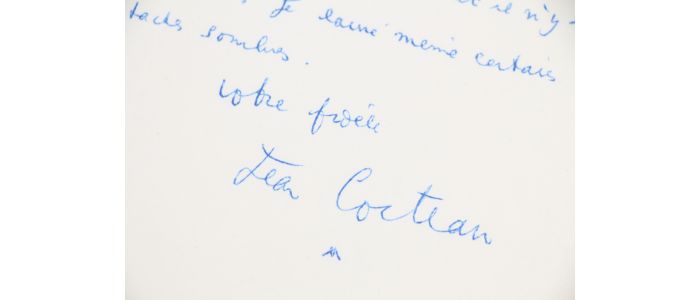 et il n'y
. Je laisse même certaines
taches sombres.
votre fidèle
Jean Cocteau